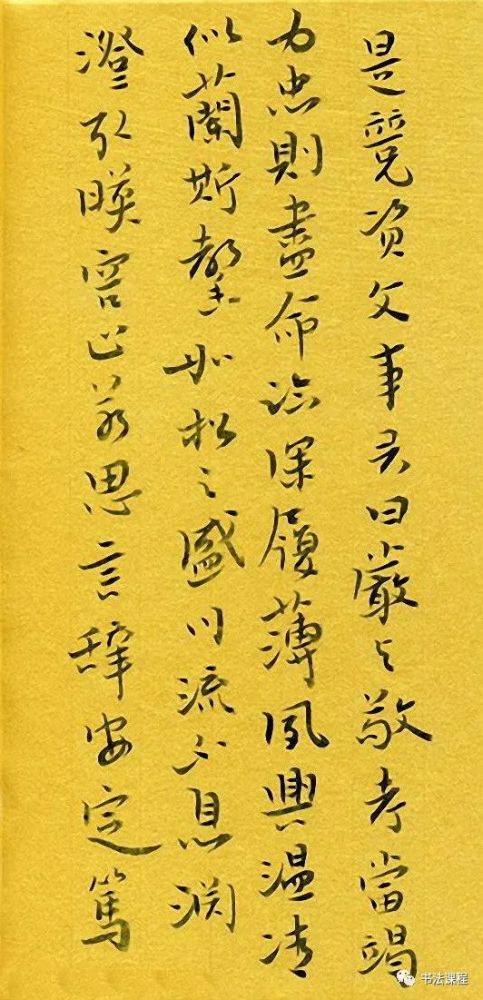 是競資父事君曰嚴与敬孝當竭
力忠則盡命臨深履薄夙興溫清
似蘭斯馨如松之盛川流不息淵
澄取暎容止若思言辭安定篤
书法课程